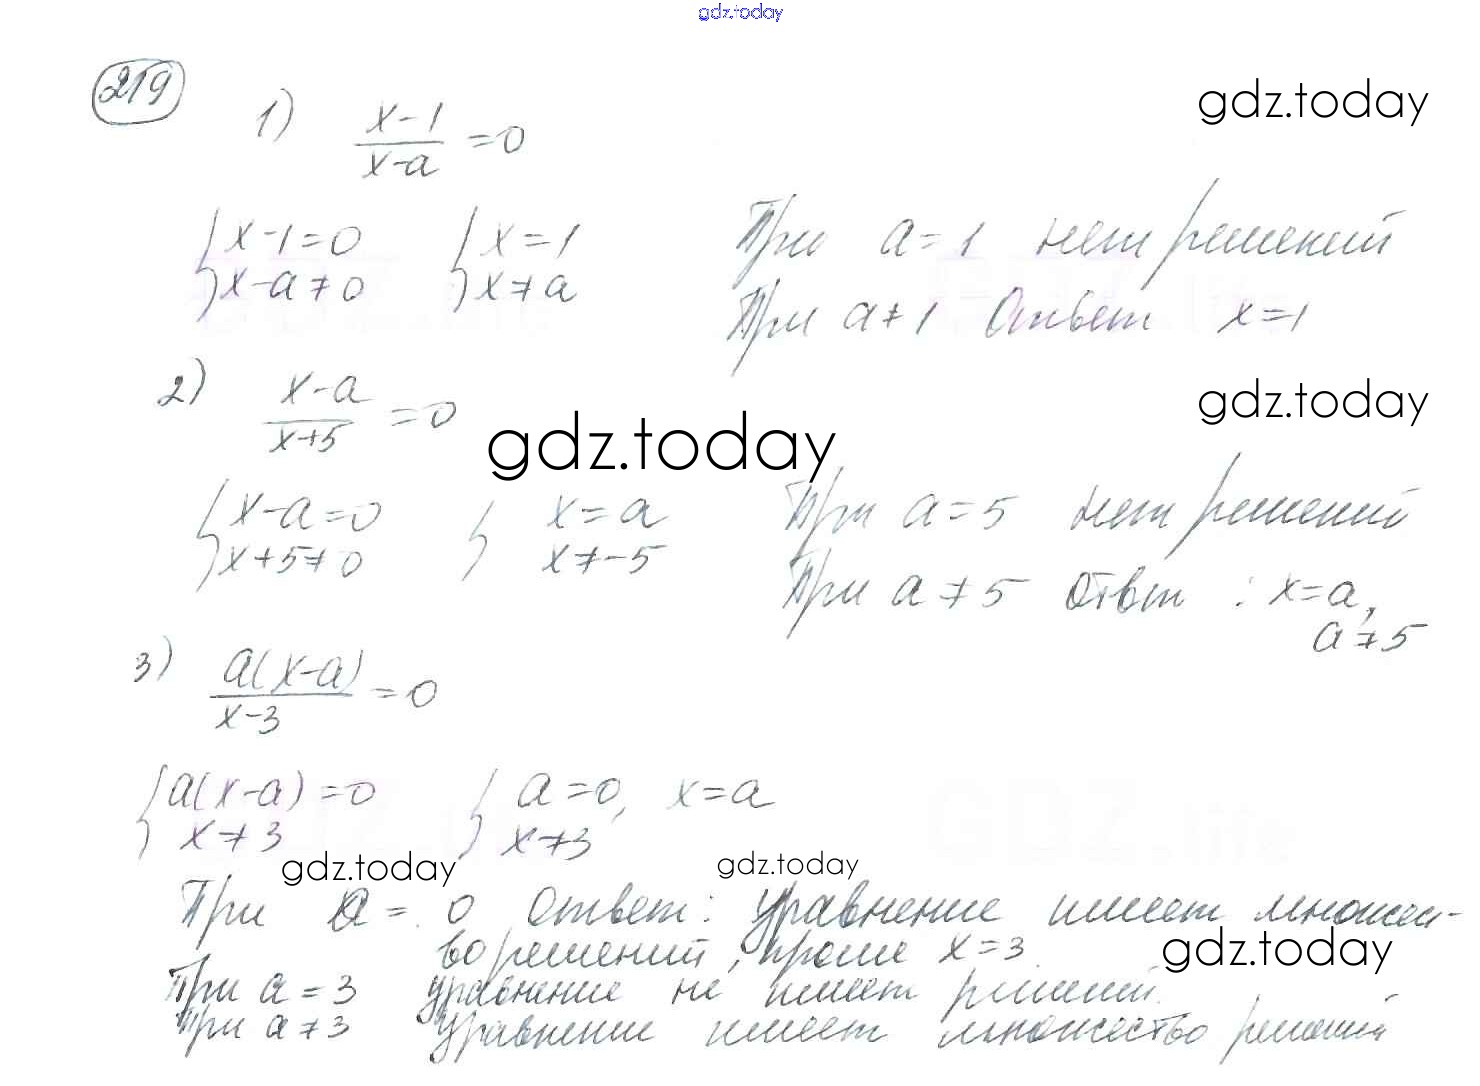 gdz.today
219
gdz.today
1) (x-1)/(x-a) = 0
{x-1=0 {x=1 При a=1 нет решений
{x-a≠0 {x≠a При a≠1 Ответ x=1
2) (x-a)/(x+5) = 0
gdz.today
gdz.today
{x-a=0 {x=a При a=5 нет решений
{x+5≠0 {x≠-5 При a≠5 Ответ : x=a,
a≠5
3) a(x-a)/(x-3) = 0
{a(x-a)=0 {a=0, x=a
{x≠3 {x≠3
gdz.today gdz.today
При a = 0 Ответ: Уравнение имеет множест-
во решений, кроме x=3
gdz.today
При a = 3 уравнение не имеет решений.
При a≠3 Уравнение имеет множество решений